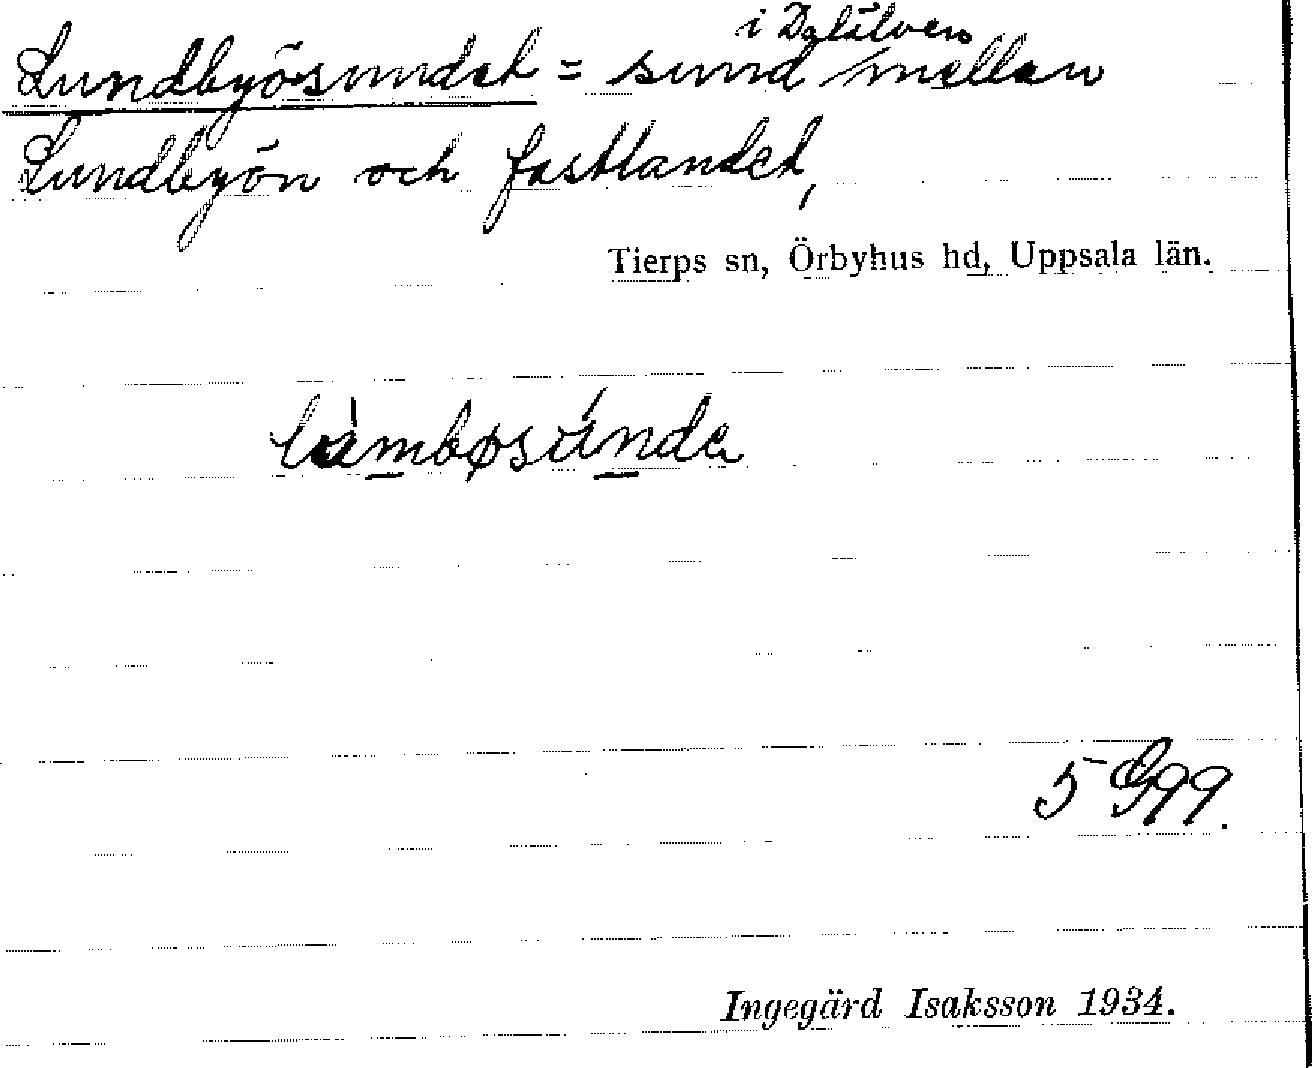 i Dalälven
Lundbyösundet = sund mellan
Lundbyön och fastlandet,
Tierps sn, Örbyhus hd, Uppsala län.
làmbøsúnda
5 G 99.
Ingegärd Isaksson 1934.